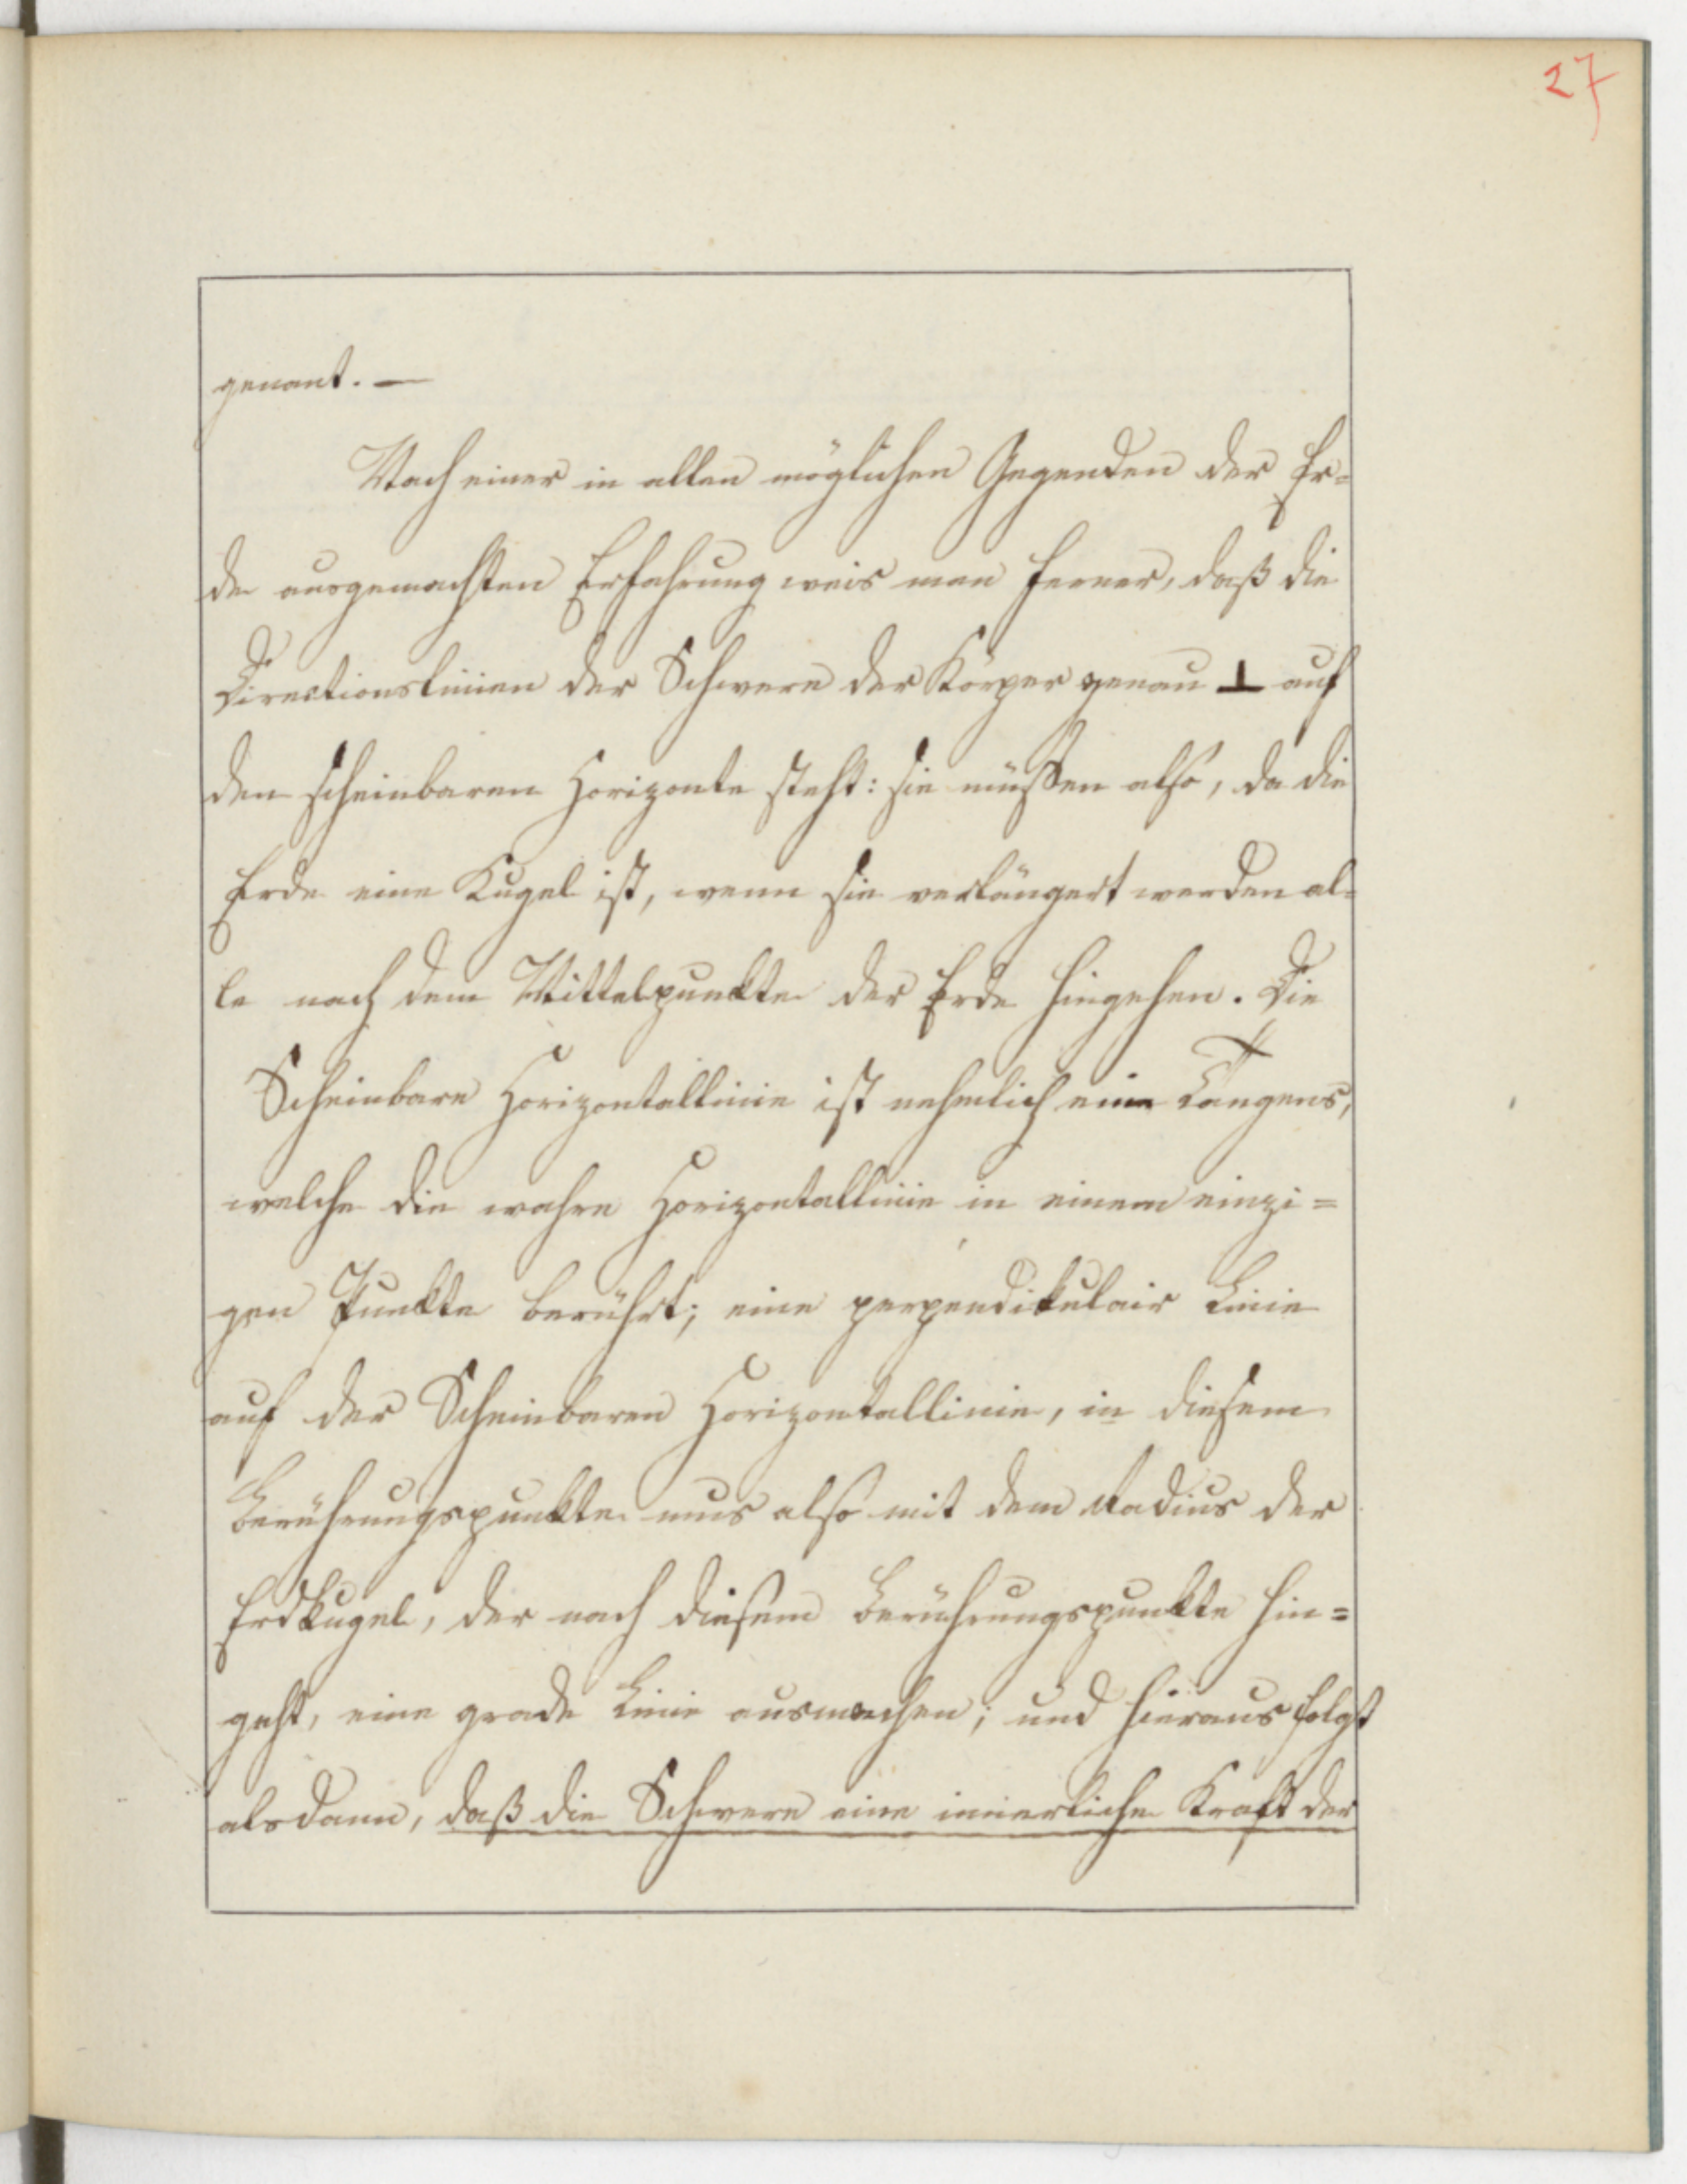 27
genant. —
Nach einer in allen möglichen Gegenden der Er=
de ausgemachten Erfahrung weis man ferner, daß die
Directionslinien der Schwere der Körper genau ⊥ auf
den scheinbaren Horizonte steht: sie müssen also, da die
Erde eine Kugel ist, wenn sie verlängert werden al=
le nach dem Mittelpunkte der Erde hingehen. Die
Scheinbare Horizontallinie ist nehmlich eine Tangens,
welche die wahre Horizontallinie in einem einzi=
gen Punkte berührt; eine perpendikulair Linie
auf der Scheinbaren Horizontallinie, in diesem
Berührungspunkte mus also mit dem Radius der
Erdkugel, der nach diesem Berührungspunkte hin=
geht, eine grade Linie ausmachen; und hieraus folgt
alsdann, daß die Schwere eine innerliche Kraft der